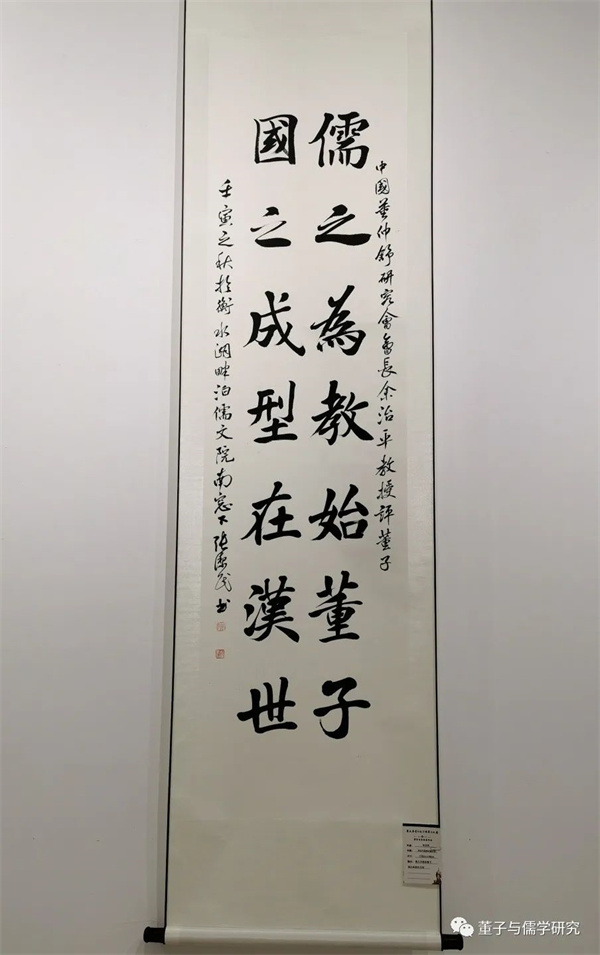 中國董仲舒研究會會長余治平教授評董子
儒之為教始董子
國之成型在漢世
壬寅之秋於衡水湖畔泊儒文院南窓下張源民书
董子与儒学研究